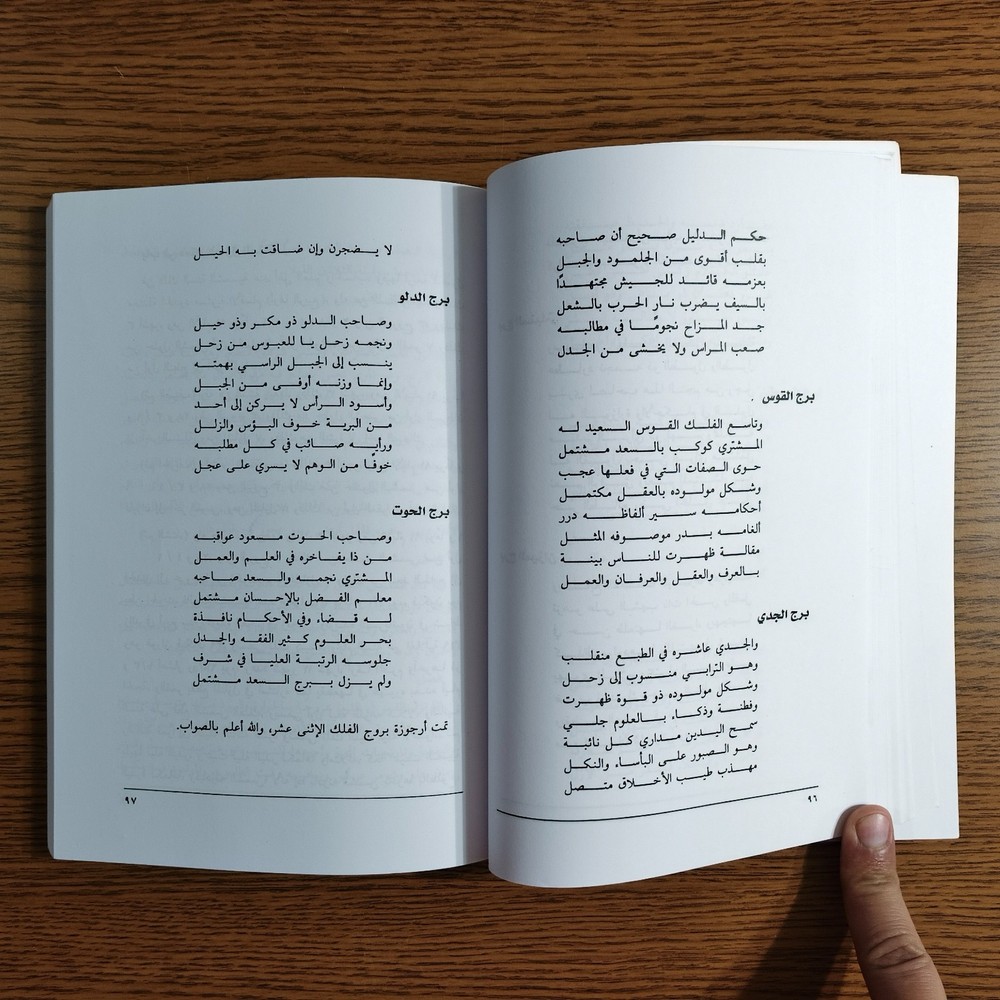 حكم الدليل صحيح أن صاحبه
بقلب أقوى من الجلمود والجبل
بعزمه قائد للجيش مجتهدًا
بالسيف يضرب نار الحرب بالشعل
جد المزاح نجومًا في مطالبه
صعب المراس ولا يخشى من الجدل
برج القوس .
وتاسع الفلك القوس السعيد له
المشتري كوكب بالسعد مشتمل
حوى الصفات التي في فعلها عجب
وشكل مولوده بالعقل مكتمل
أحكامه سير ألفاظه درر
ألغامه بدر موصوفه المثل
مقالة ظهرت للناس بينة
بالعرف والعقل والعرفان والعمل
برج الجدي
والجدي عاشره في الطبع منقلب
وهو الترابي منسوب إلى زحل
وشكل مولوده ذو قوة ظهرت
وفطنة وذكاء بالعلوم جلي
سمح اليدين مداري كل نائبة
وهو الصبور على البأساء والنكل
مهذب طيب الأخلاق متصل
٩٦
لا يضجرن وإن ضاقت به الحيل
برج الدلو
وصاحب الدلو ذو مكر وذو حيل
ونجمه زحل يا للعبوس من زحل
ينسب إلى الجبل الراسي بهمته
وإنما وزنه أوفى من الجبل
وأسود الرأس لا يركن إلى أحد
من البرية خوف البؤس والزلل
ورأيه صائب في كل مطلبه
خوفًا من الوهم لا يسري على عجل
برج الحوت
وصاحب الحوت مسعود عواقبه
من ذا يفاخره في العلم والعمل
المشتري نجمه والسعد صاحبه
معلم الفضل بالإحسان مشتمل
له قضاء وفي الأحكام نافذة
بحر العلوم كثير الفقه والجدل
جلوسه الرتبة العليا في شرف
ولم يزل ببرج السعد مشتمل
تمت أرجوزة بروج الفلك الإثنى عشر، والله أعلم بالصواب.
٩٧